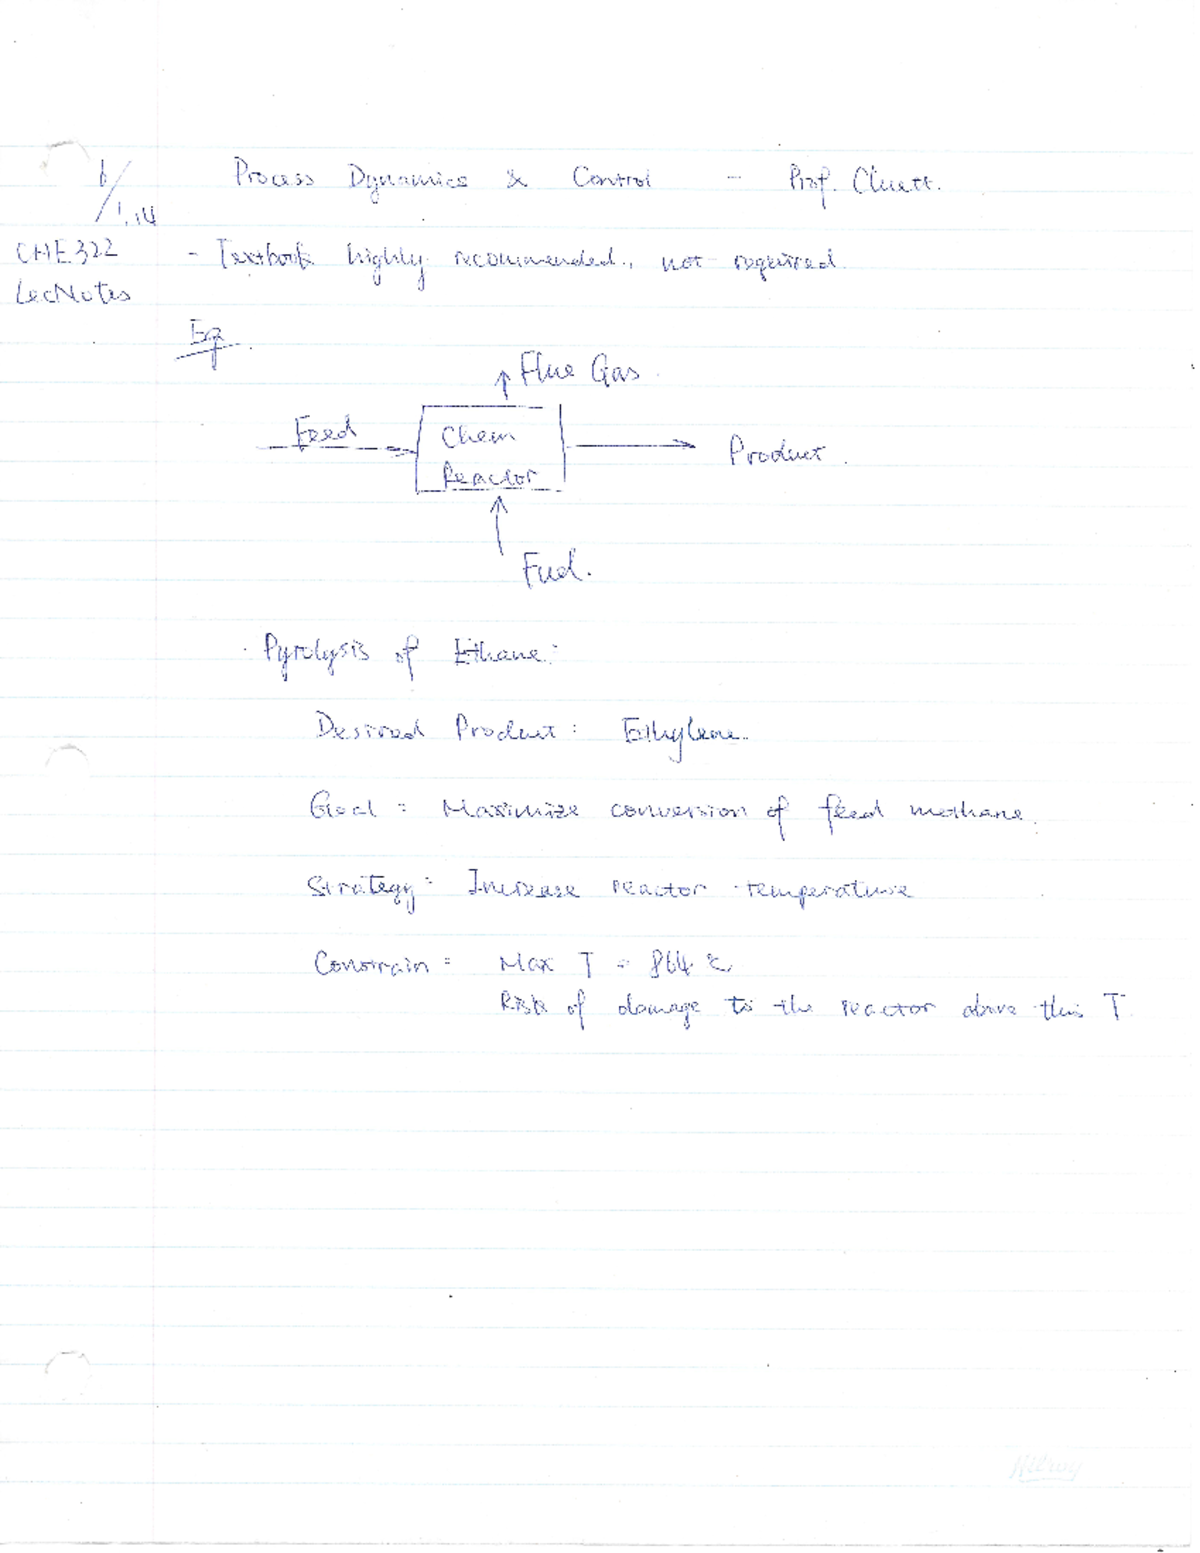 6/1.14
Process Dynamics & Control - Prof. Cluett.
CHE322
LecNotes
- Textbook highly recommended., not required.
Eg.
Flue Gas
Feed
Chem
Reactor
Product.
Fuel.
· Pyrolysis of Ethane:
Desired Product: Ethylene.
Goal: Maximize conversion of feed methane.
Strategy: Increase reactor temperature
Constrain: Max T = 864 °C
Risk of damage to the reactor above this T.
Hilroy